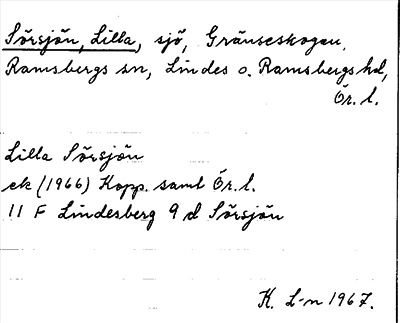 Sörsjön, Lilla, sjö, Gränsskogen,
Ramsbergs sn, Lindes o. Ramsbergs hd,
Ör. l.
Lilla Sörsjön
ek (1966) Kopp. samt Ör. l.
11 F Lindesberg 9 d Sörsjön
K. L-n 1967.